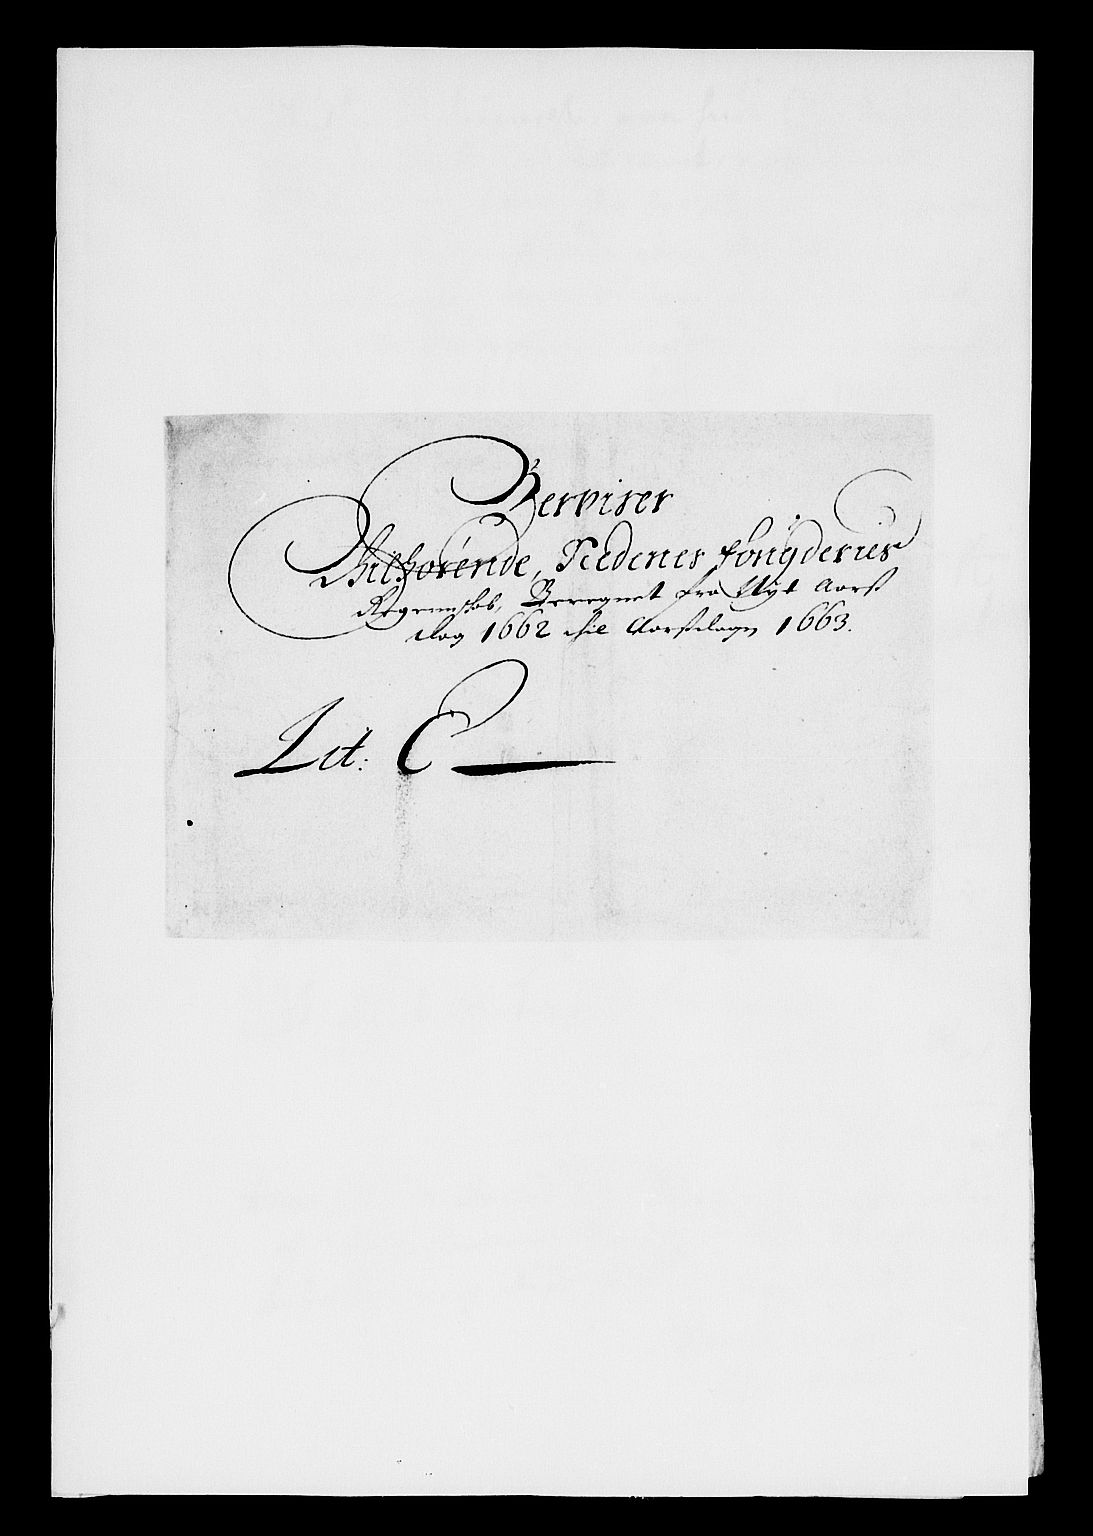 Beviser
Thilhørende, Nedenes fougderies
Regennskab, Beregnet fra Nyt Aars
dag 1662 thil Aarsdagen 1663.
Lit: C